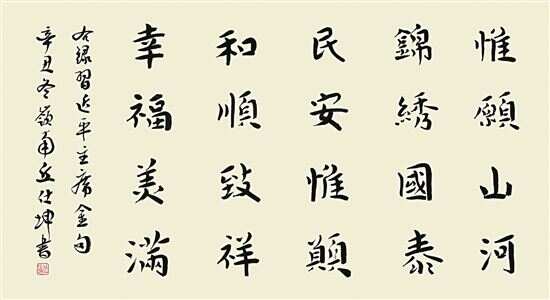 惟願山河
錦綉國泰
民安惟願
和順致祥
幸福美滿
右録習近平主席金句
辛丑冬嶺南丘仕坤書